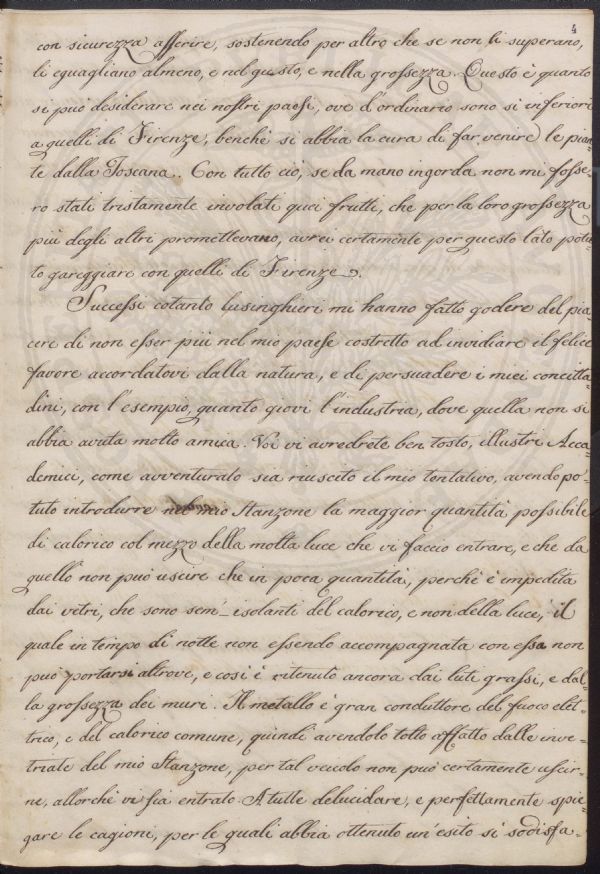 4
con sicurezza asserire, sostenendo per altro che se non li superano,
li eguagliano almeno, e nel gusto, e nella grossezza. Questo è quanto
si può desiderare nei nostri paesi, ove d'ordinario sono sì inferiori
a quelli di Firenze, benchè si abbia la cura di far venire le pian=
te dalla Toscana. Con tutto ciò, se da mano ingorda non mi fosse=
ro stati tristamente involati quei frutti, che per la loro grossezza
più degli altri promettevano, avrei certamente per questo lato potu=
to gareggiare con quelli di Firenze.
Successi cotanto lusinghieri mi hanno fatto godere del pia=
cere di non esser più nel mio paese costretto ad invidiare il felice
favore accordatovi dalla natura, e di persuadere i miei concitta=
dini, con l'esempio, quanto giovi l'industria, dove quella non si
abbia avuta molto amica. Voi vi avvedrete ben tosto, illustri Acca=
demici, come avventurato sia riuscito il mio tentativo, avendo po=
tuto introdurre nel mio Stanzone la maggior quantità possibile
di calorico col mezzo della molta luce che vi faccio entrare, e che da
quello non può uscire che in poca quantità, perchè è impedita
dai vetri, che sono sem'=isolanti del calorico, e non della luce, il
quale in tempo di notte non essendo accompagnata con essa non
può portarsi altrove, e così è ritenuto ancora dai luti grassi, e dal=
la grossezza dei muri. Il metallo è gran conduttore del fuoco elet=
trico, e del calorico comune, quindi avendolo tolto affatto dalle inve=
triate del mio Stanzone, per tal veicolo non può certamente uscir=
ne, allorchè vi sia entrato. A tutte delucidare, e perfettamente spie=
gare le cagioni, per le quali abbia ottenuto un'esito sì sodisfa=